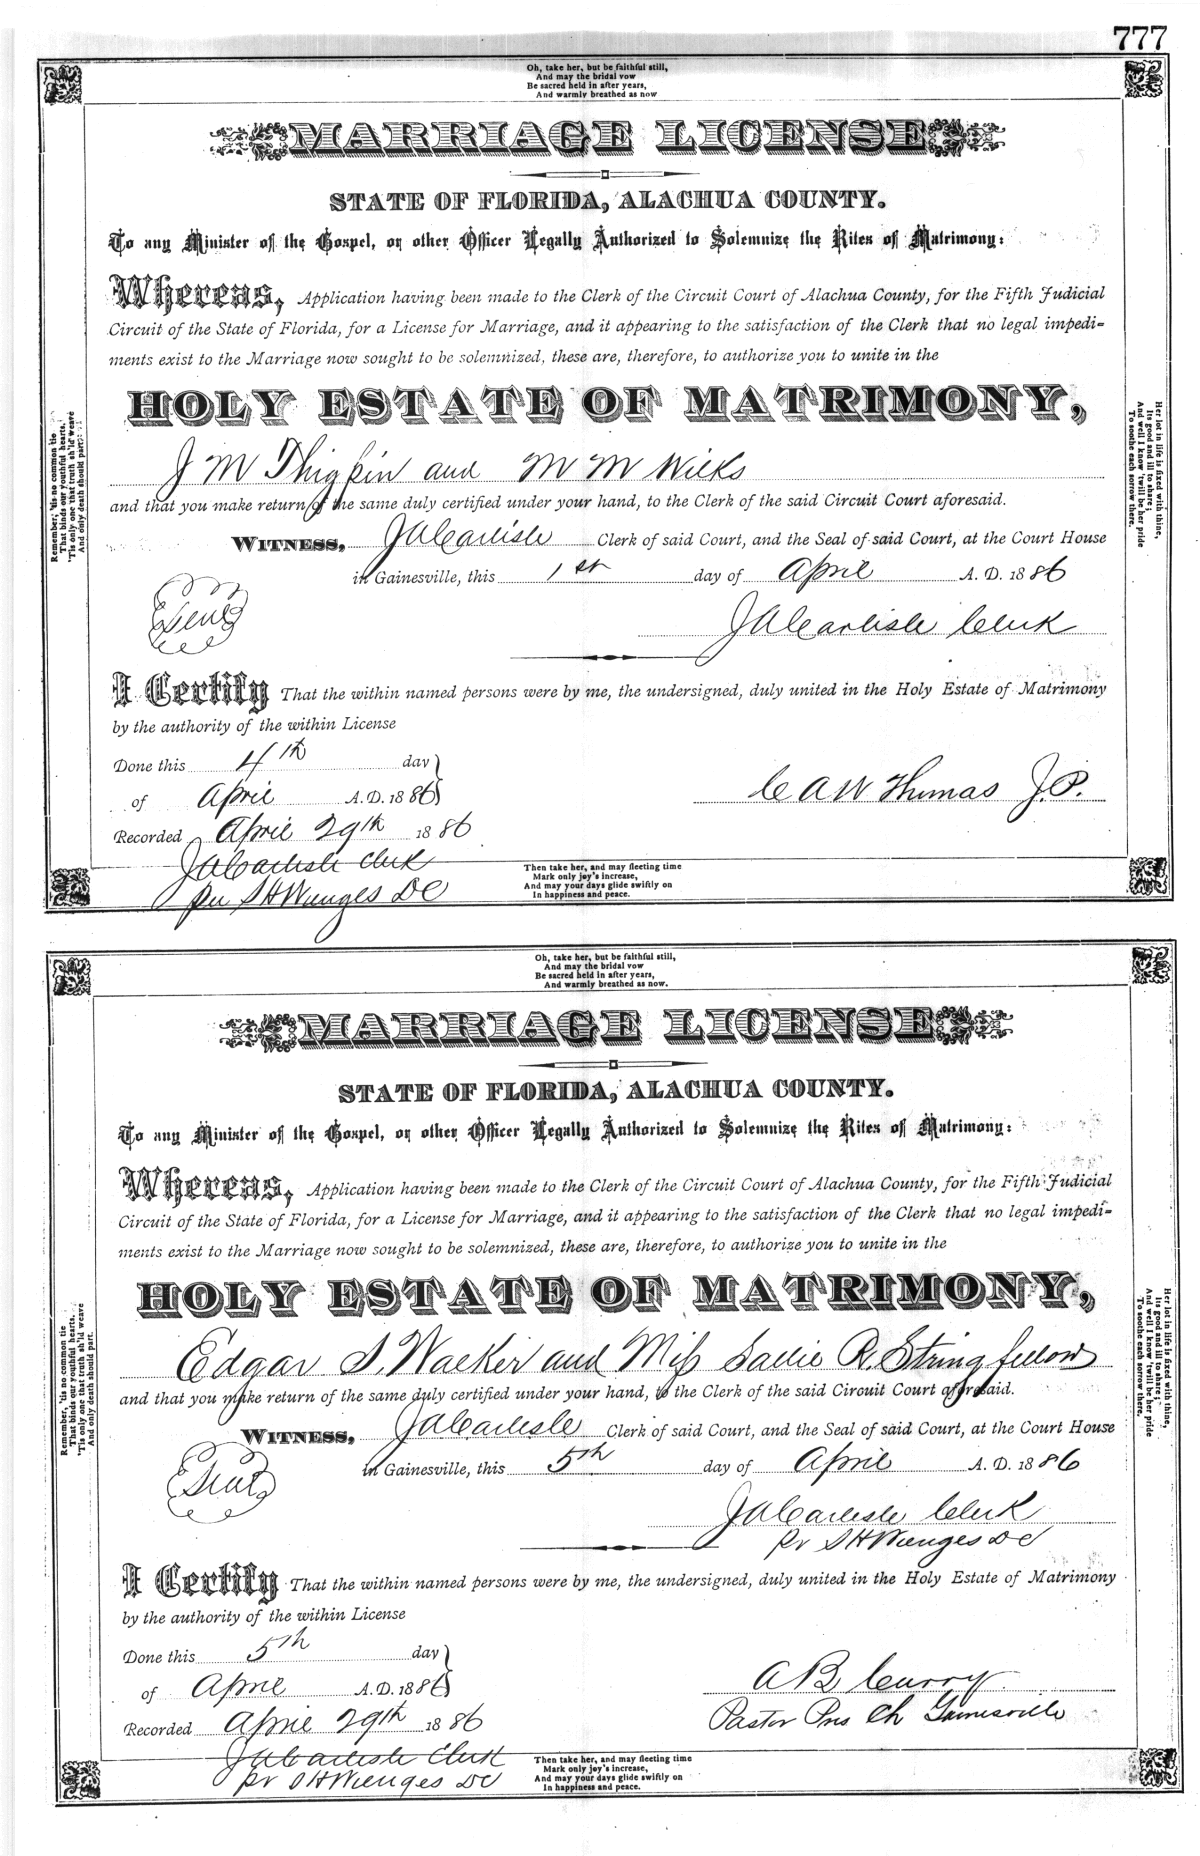 777
Oh, take her, but be faithful still,
And may the bridal vow
Be sacred held in after years,
And warmly breathed as now
MARRIAGE LICENSE
STATE OF FLORIDA, ALACHUA COUNTY.
To any Minister of the Gospel, or other Officer Legally Authorized to Solemnize the Rites of Matrimony:
Whereas, Application having been made to the Clerk of the Circuit Court of Alachua County, for the Fifth Judicial
Circuit of the State of Florida, for a License for Marriage, and it appearing to the satisfaction of the Clerk that no legal impedi-
ments exist to the Marriage now sought to be solemnized, these are, therefore, to authorize you to unite in the
HOLY ESTATE OF MATRIMONY,
J M Thigpin and M M Wilks
and that you make return of the same duly certified under your hand, to the Clerk of the said Circuit Court aforesaid.
WITNESS, J A Carlisle Clerk of said Court, and the Seal of said Court, at the Court House
in Gainesville, this 1st day of April A. D. 1886
Seal
J A Carlisle Clerk
I Certify That the within named persons were by me, the undersigned, duly united in the Holy Estate of Matrimony
by the authority of the within License
Done this 4th day
of April A.D. 1886
C A W Thomas J.P.
Recorded April 29th 1886
J A Carlisle Clerk
per S H Wienges DC
Then take her, and may fleeting time
Mark only joy's increase,
And may your days glide swiftly on
In happiness and peace.
Remember, 'tis no common tie
That binds our youthful hearts,
'Tis only one that truth sh'ld weave
And only death should part.
Her lot in life is fixed with thine,
Its good and ill to share;
And well I know 'twill be her pride
To soothe each sorrow there.
Oh, take her, but be faithful still,
And may the bridal vow
Be sacred held in after years,
And warmly breathed as now.
MARRIAGE LICENSE
STATE OF FLORIDA, ALACHUA COUNTY.
To any Minister of the Gospel, or other Officer Legally Authorized to Solemnize the Rites of Matrimony:
Whereas, Application having been made to the Clerk of the Circuit Court of Alachua County, for the Fifth Judicial
Circuit of the State of Florida, for a License for Marriage, and it appearing to the satisfaction of the Clerk that no legal impedi-
ments exist to the Marriage now sought to be solemnized, these are, therefore, to authorize you to unite in the
HOLY ESTATE OF MATRIMONY,
Edgar S. Walker and Miss Sallie R. Stringfellow
and that you make return of the same duly certified under your hand, to the Clerk of the said Circuit Court aforesaid.
WITNESS, J A Carlisle Clerk of said Court, and the Seal of said Court, at the Court House
in Gainesville, this 5th day of April A. D. 1886
Seal
J A Carlisle Clerk
pr S H Wienges DC
I Certify That the within named persons were by me, the undersigned, duly united in the Holy Estate of Matrimony
by the authority of the within License
Done this 5th day
of April A.D. 1886
A B Curry
Pastor Pres Ch Gainesville
Recorded April 29th 1886
J A Carlisle Clerk
pr S H Wienges DC
Then take her, and may fleeting time
Mark only joy's increase,
And may your days glide swiftly on
In happiness and peace.
Remember, 'tis no common tie
That binds our youthful hearts,
'Tis only one that truth sh'ld weave
And only death should part.
Her lot in life is fixed with thine,
Its good and ill to share;
And well I know 'twill be her pride
To soothe each sorrow there.